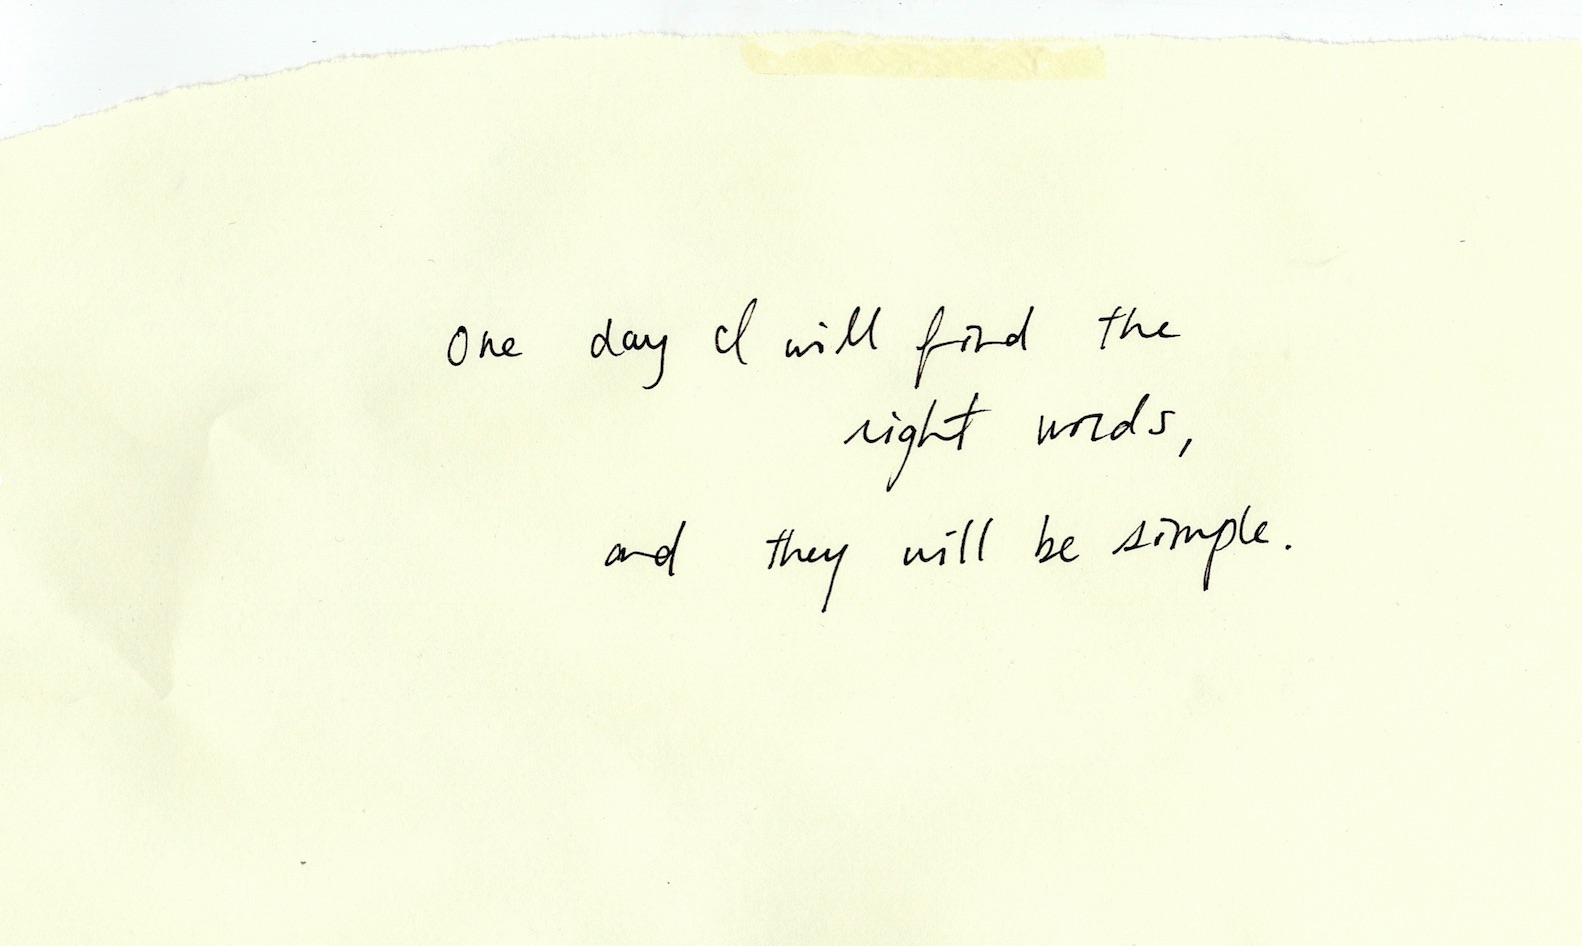 One day I will find the
right words,
and they will be simple.